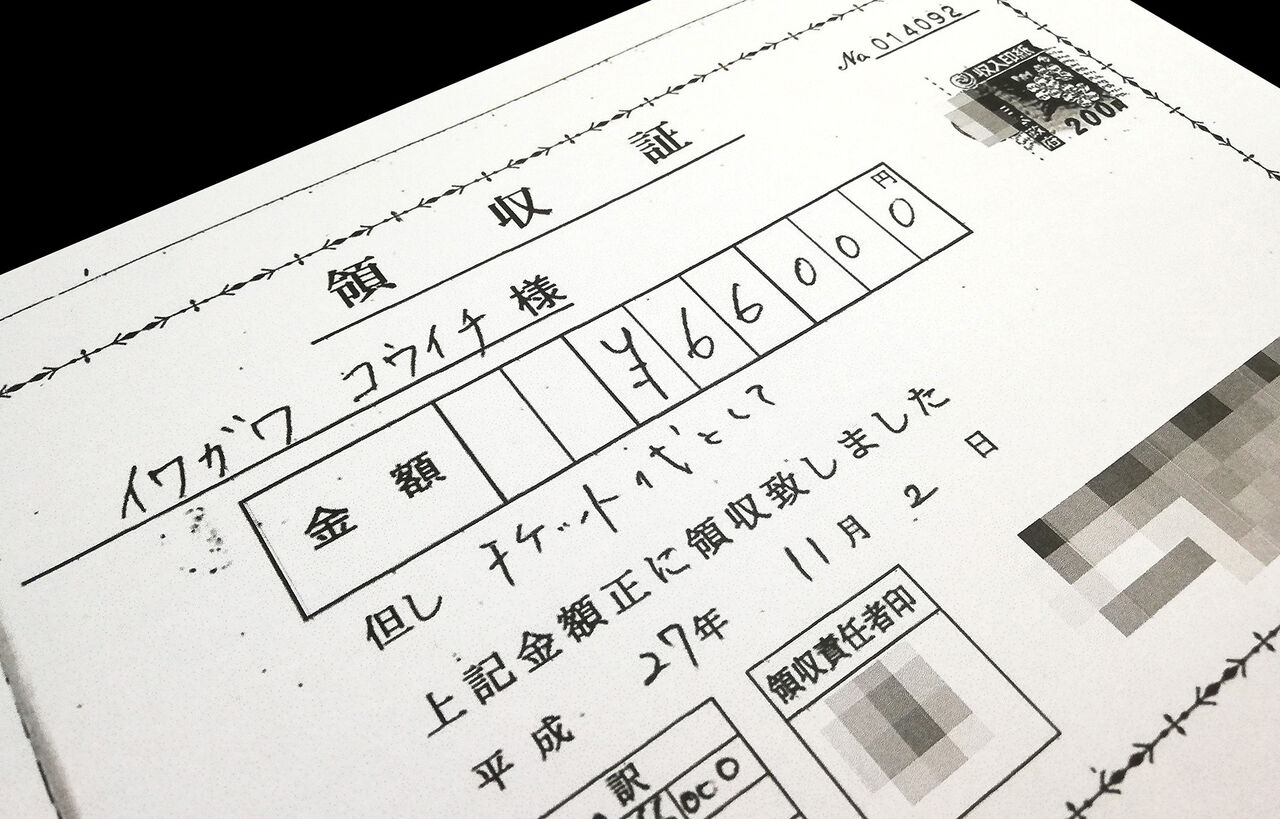 No 014092
収入印紙
200円
領収証
イワガワ コウイチ 様
金額 ¥66000円
但し チケット代として
上記金額正に領収致しました
平成 27年 11月 2日
領収責任者印
訳